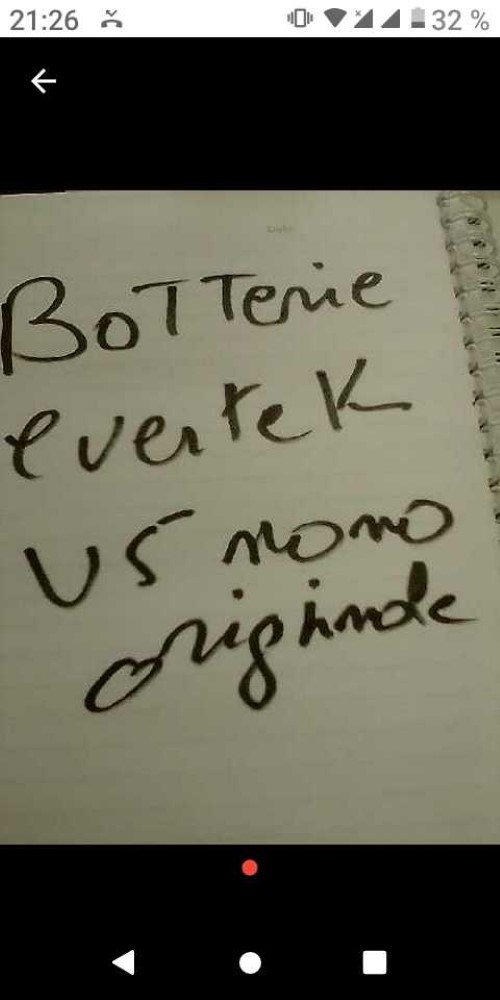 21:26 32 %
Batterie
evertek
V5 nano
originale